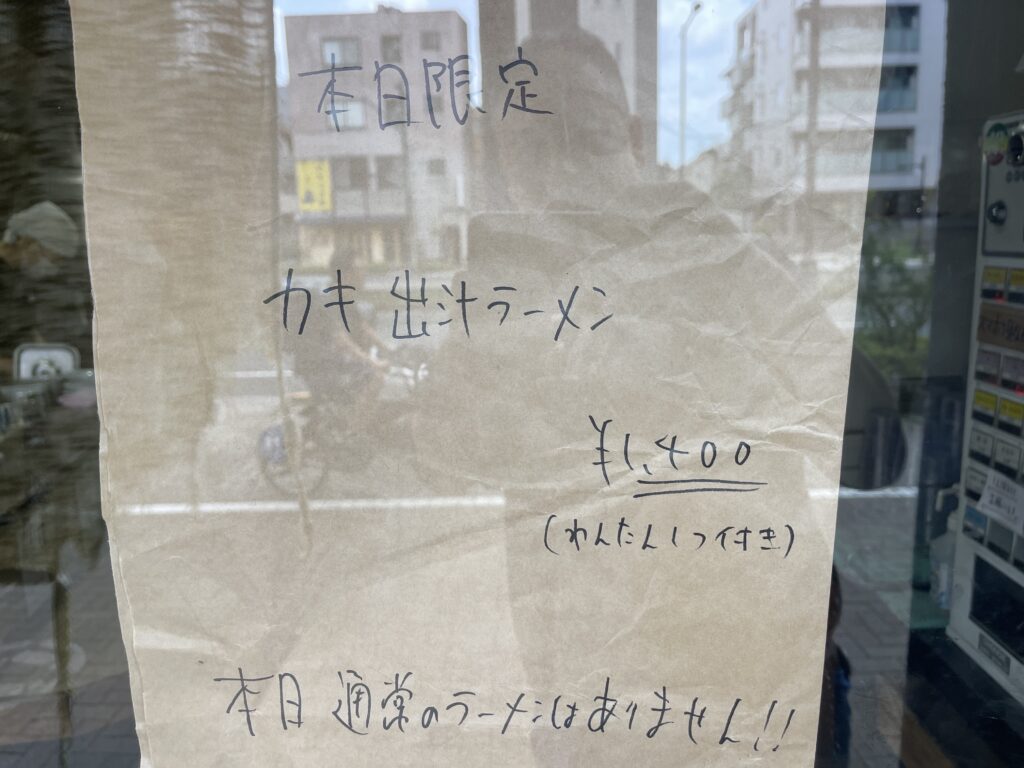 本日限定
カキ 出汁ラーメン
¥1,400
(わんたん1つ付き)
本日 通常のラーメンはありません!!